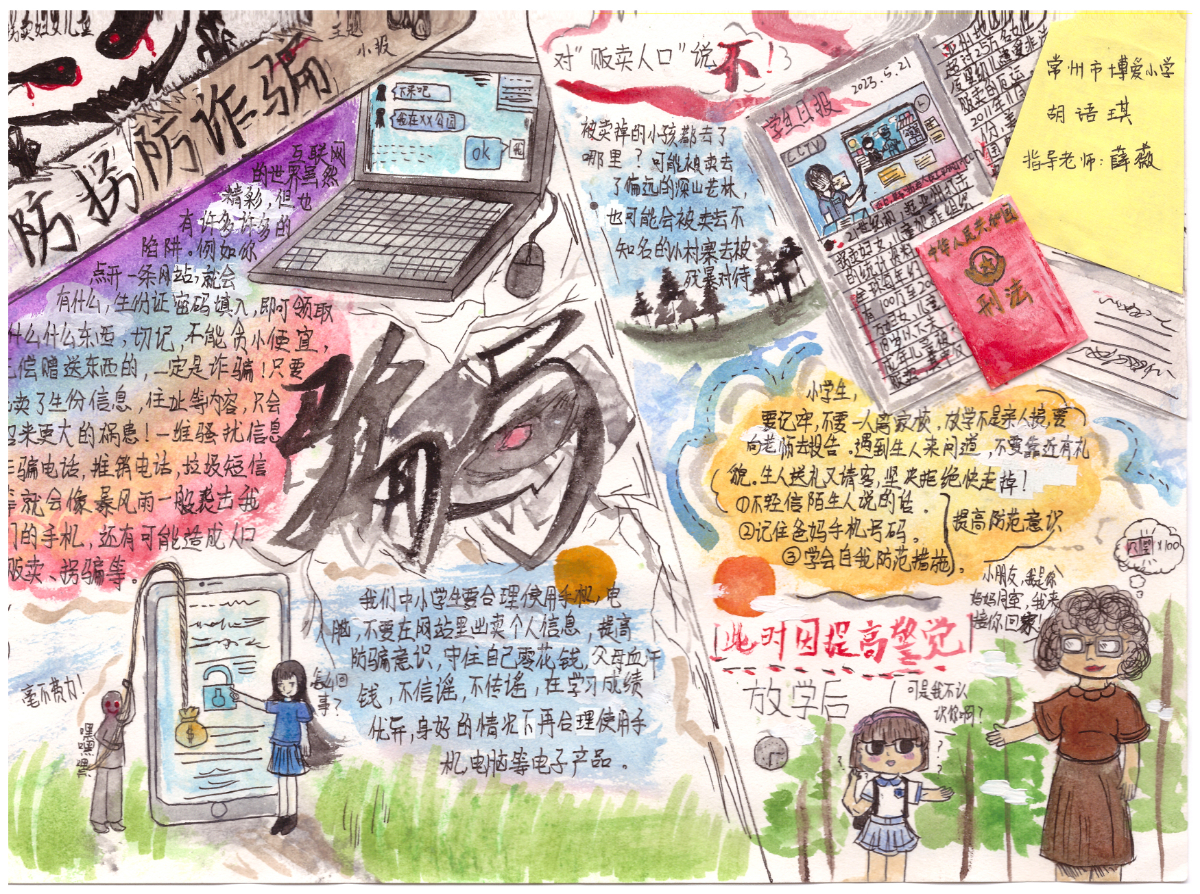 拐卖妇女儿童
主题
小报
防拐防诈骗
下来吧
我在XX公园
OK
互联网
的世界虽然
精彩,但也
有许多许多的
陷阱。例如你
点开一条网站,就会
有什么,生份证密码填入,即可领取
什么什么东西,切记,不能贪小便宜,
偿赠送东西的,一定是诈骗!只要
卖了生份信息,住址等内容,只会
来更大的祸患!一堆骚扰信息
骗电话,推销电话,垃圾短信
就会像暴风雨一般袭击我
们的手机,还有可能造成人口
贩卖、拐骗等。
骗
毫不费力!
嘿嘿嘿
怎么回
事?
我们中小学生要合理使用手机,电
脑,不要在网站里出卖个人信息,提高
防骗意识,守住自己零花钱,父母血汗
钱,不信谣,不传谣,在学习成绩
优异,身好的情况下再合理使用手
机电脑等电子产品。
对“贩卖人口”说不!
被卖掉的小孩都去了
哪里?可能被卖去
了偏远的深山老林,
也可能会被卖去不
知名的小村寨去被
残暴对待
学生日报
2023.5.21
CCTV
中华人民共和国
刑法
常州市博爱小学
胡语琪
指导老师:薛薇
小学生,
要记牢,不要一人离家校,放学不是亲人接,要
向老师去报告。遇到生人来问道,不要靠近有礼
貌。生人送礼又请客,坚决拒绝快走掉!
①不轻信陌生人说的话。
②记住爸妈手机号码。
③学会自我防范措施。
提高防范意识
此时因提高警觉
放学后
可是我不认
识你啊?
小朋友,我是你
妈妈同事,我来
接你回家!
x100